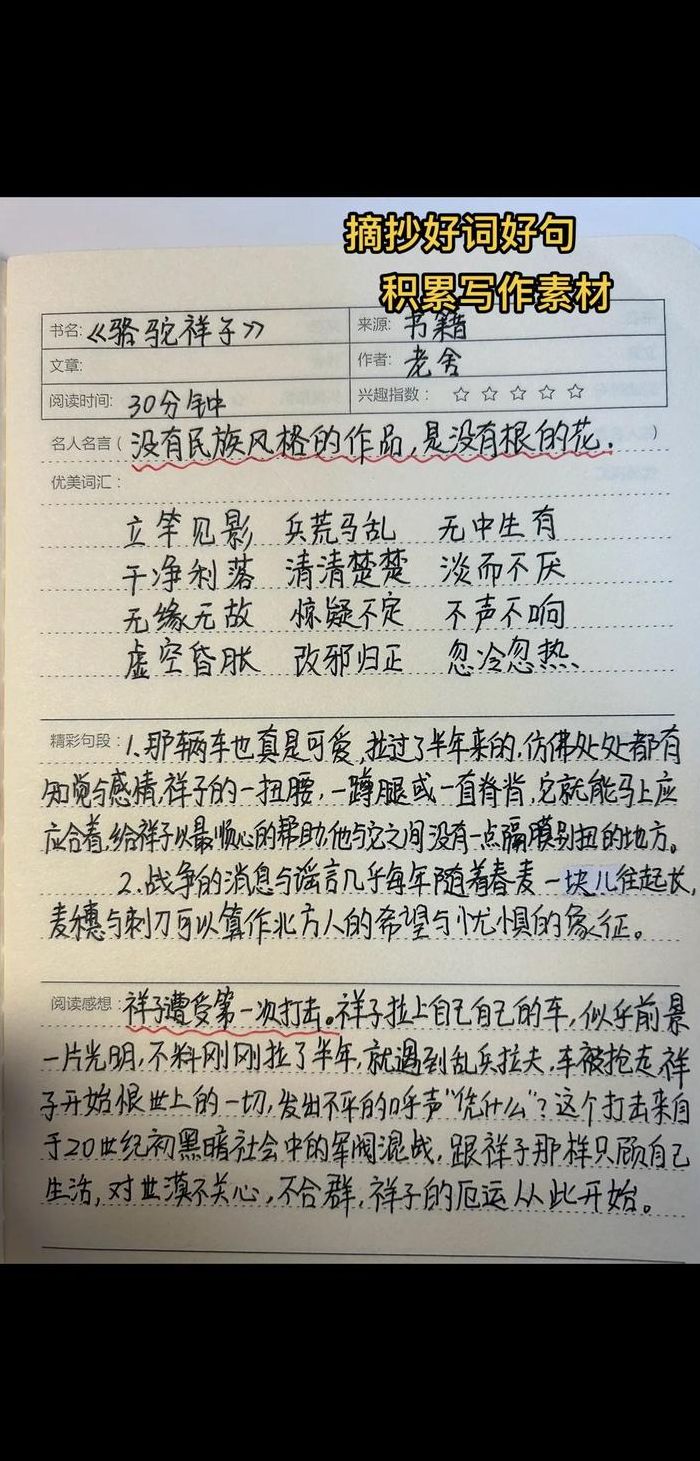 摘抄好词好句
积累写作素材
书名:《骆驼祥子》 来源: 书籍
文章: 作者: 老舍
阅读时间: 30分钟 兴趣指数: ☆ ☆ ☆ ☆ ☆
名人名言( 没有民族风格的作品,是没有根的花. )
优美词汇:
立竿见影 兵荒马乱 无中生有
干净利落 清清楚楚 淡而不厌
无缘无故 惊疑不定 不声不响
虚空昏胀 改邪归正 忽冷忽热
精彩句段: 1.那辆车也真是可爱,拉过了半年来的,仿佛处处都有
知觉与感情,祥子的一扭腰,一蹲腿或一直脊背,它就能马上应
应合着,给祥子以最顺心的帮助,他与它之间没有一点隔膜别扭的地方。
2.战争的消息与谣言几乎每年随着春麦一块儿往起长,
麦穗与刺刀可以算作北方人的希望与忧惧的象征。
阅读感想: 祥子遭受第一次打击。祥子拉上自己自己的车,似乎前景
一片光明,不料刚刚拉了半年,就遇到乱兵拉夫,车被抢走,祥
子开始恨世上的一切,发出不平的呼声"凭什么"?这个打击来自
于20世纪初黑暗社会中的军阀混战,跟祥子那样只顾自己
生活,对世漠不关心,不合群,祥子的厄运从此开始。